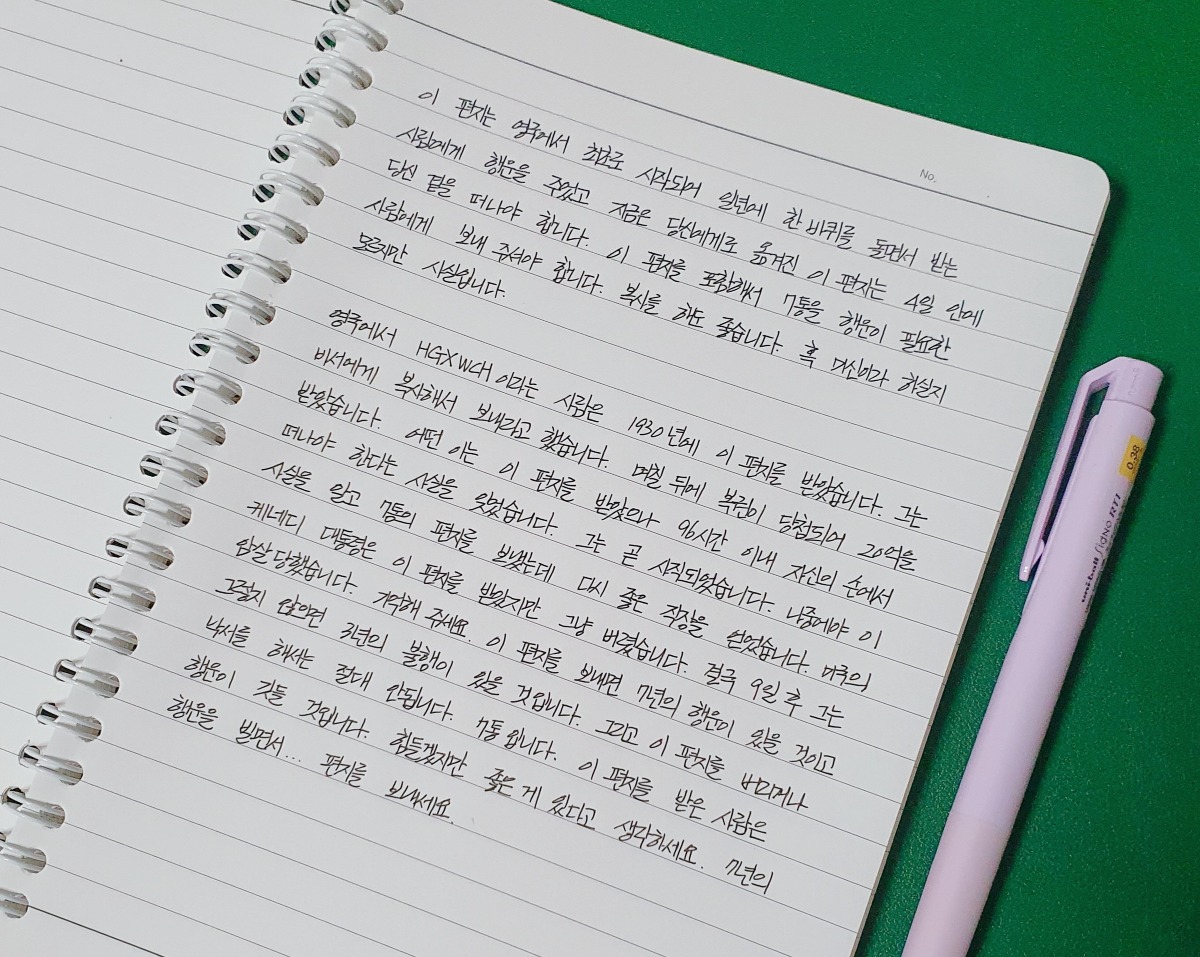 No.
이 편지는 영국에서 최초로 시작되어 일년에 한 바퀴를 돌면서 받는
사람에게 행운을 주었고 지금은 당신에게로 옮겨진 이 편지는 4일 안에
당신 곁을 떠나야 합니다. 이 편지를 포함해서 7통을 행운이 필요한
사람에게 보내 주셔야 합니다. 복사를 해도 좋습니다. 혹 미신이라 하실지
모르지만 사실입니다.
영국에서 HGXWCH이라는 사람은 1930년에 이 편지를 받았습니다. 그는
비서에게 복사해서 보내라고 했습니다. 며칠 뒤에 복권이 당첨되어 20억을
받았습니다. 어떤 이는 이 편지를 받았으나 96시간 이내 자신의 손에서
떠나야 한다는 사실을 잊었습니다. 그는 곧 사직되었습니다. 나중에야 이
사실을 알고 7통의 편지를 보냈는데 다시 좋은 직장을 얻었습니다. 미국의
케네디 대통령은 이 편지를 받았지만 그냥 버렸습니다. 결국 9일 후 그는
암살 당했습니다. 기억해 주세요. 이 편지를 보내면 7년의 행운이 있을 것이고
그렇지 않으면 3년의 불행이 있을 것입니다. 그리고 이 편지를 버리거나
낙서를 해서는 절대 안됩니다. 7통입니다. 이 편지를 받은 사람은
행운이 깃들 것입니다. 힘들겠지만 좋은 게 있다고 생각하세요. 7년의
행운을 빌면서... 편지를 보내세요.
0.38
uni-ball SigNO RT1